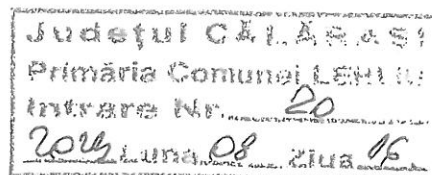 Județul CĂLĂRAȘI
Primăria Comunei LEHLIU
Intrare Nr. 20
Luna 08 Ziua 16